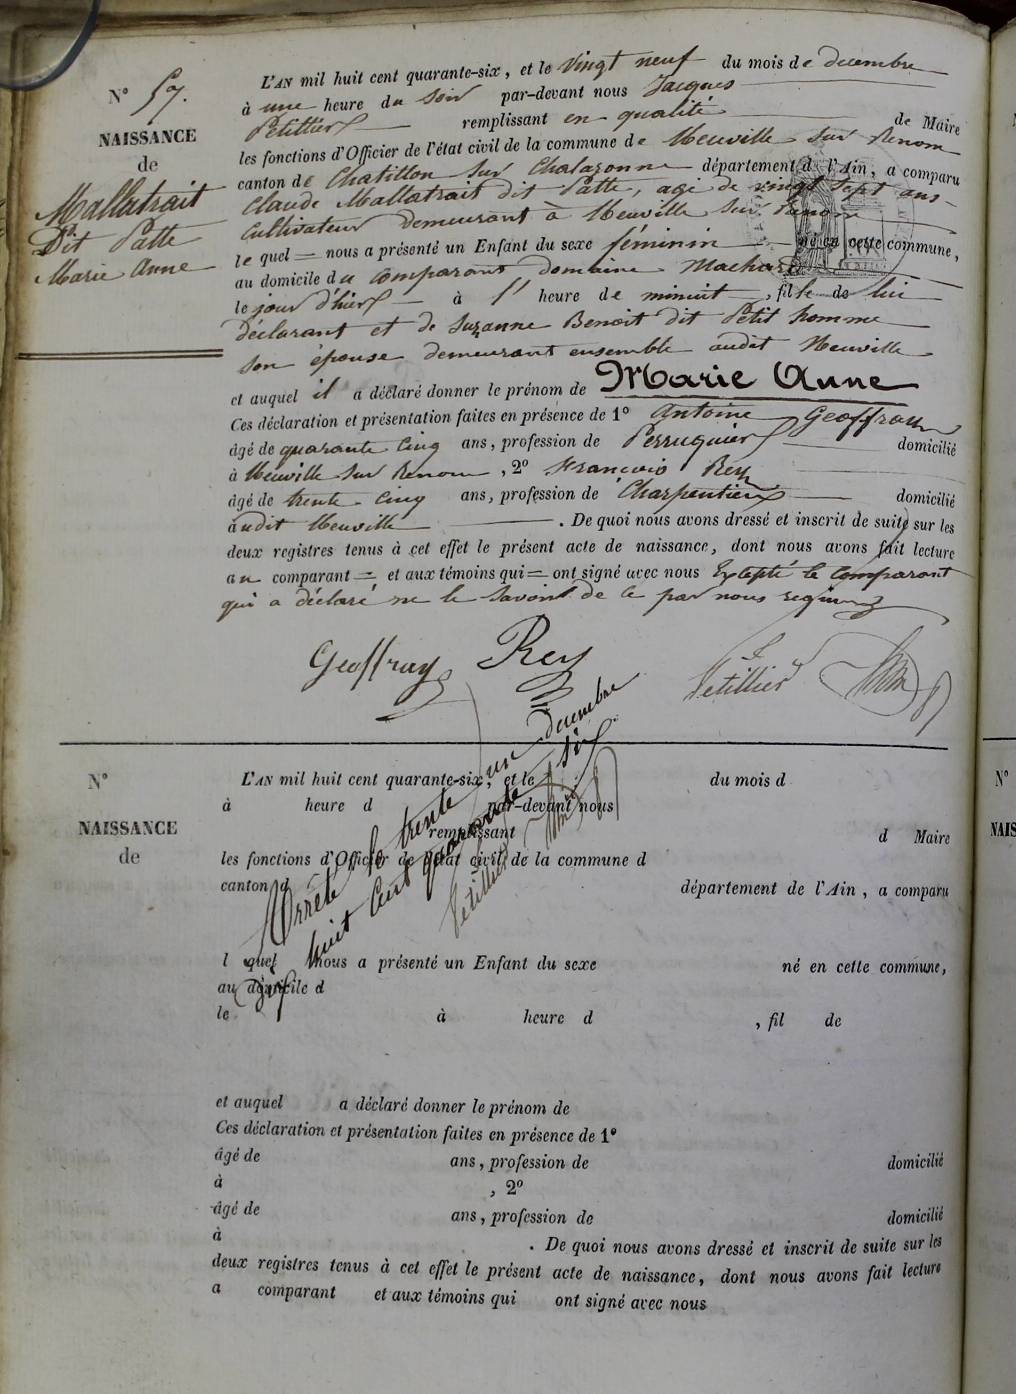 N° 57.
NAISSANCE
de
Mallatrait
Dit Patte
Marie Anne
L'AN mil huit cent quarante-six, et le vingt neuf du mois de decembre
à une heure du soir par-devant nous Jacques
Petillier remplissant en qualité de Maire
les fonctions d'Officier de l'état civil de la commune de Neuville sur Renom
canton de Chatillon sur Chalaronne département de l'Ain, a comparu
Claude Mallatrait dit Patte, agé de vingt sept ans
Cultivateur demeurant à Neuville sur Renom
lequel nous a présenté un Enfant du sexe féminin né en cette commune,
au domicile du comparant domaine
le jour d'hier à heure de minuit, fille de lui
déclarant et de Suzanne Benoit dit Petit homme
son épouse demeurant ensemble audit Neuville
et auquel il a déclaré donner le prénom de Marie Anne
Ces déclaration et présentation faites en présence de 1° Antoine Geoffray
âgé de quarante cinq ans, profession de Perruquier domicilié
à Neuville sur Renom, 2° François Rey
âgé de trente cinq ans, profession de Charpentier domicilié
audit Neuville. De quoi nous avons dressé et inscrit de suite sur les
deux registres tenus à cet effet le présent acte de naissance, dont nous avons fait lecture
au comparant et aux témoins qui ont signé avec nous Excepté le comparant
qui a déclaré ne le savoir de ce par nous requis
Geoffray Rey Petillier
Arrêté le trente un decembre
huit cent quarante six
Petillier
N°
NAISSANCE
de
L'AN mil huit cent quarante-six, et le du mois d
à heure d par-devant nous
remplissant d Maire
les fonctions d'Officier de l'état civil de la commune d
canton d département de l'Ain, a comparu
l quel nous a présenté un Enfant du sexe né en cette commune,
au domicile d
le à heure d , fil de
et auquel a déclaré donner le prénom de
Ces déclaration et présentation faites en présence de 1°
âgé de ans, profession de domicilié
à , 2°
âgé de ans, profession de domicilié
à . De quoi nous avons dressé et inscrit de suite sur les
deux registres tenus à cet effet le présent acte de naissance, dont nous avons fait lecture
a comparant et aux témoins qui ont signé avec nous
N°
NAIS